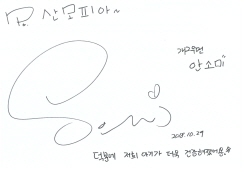 맘 산모피아~
개그우먼
안소미
2018.10.29
덕분에 저희 아기가 더욱 건강해졌어요.